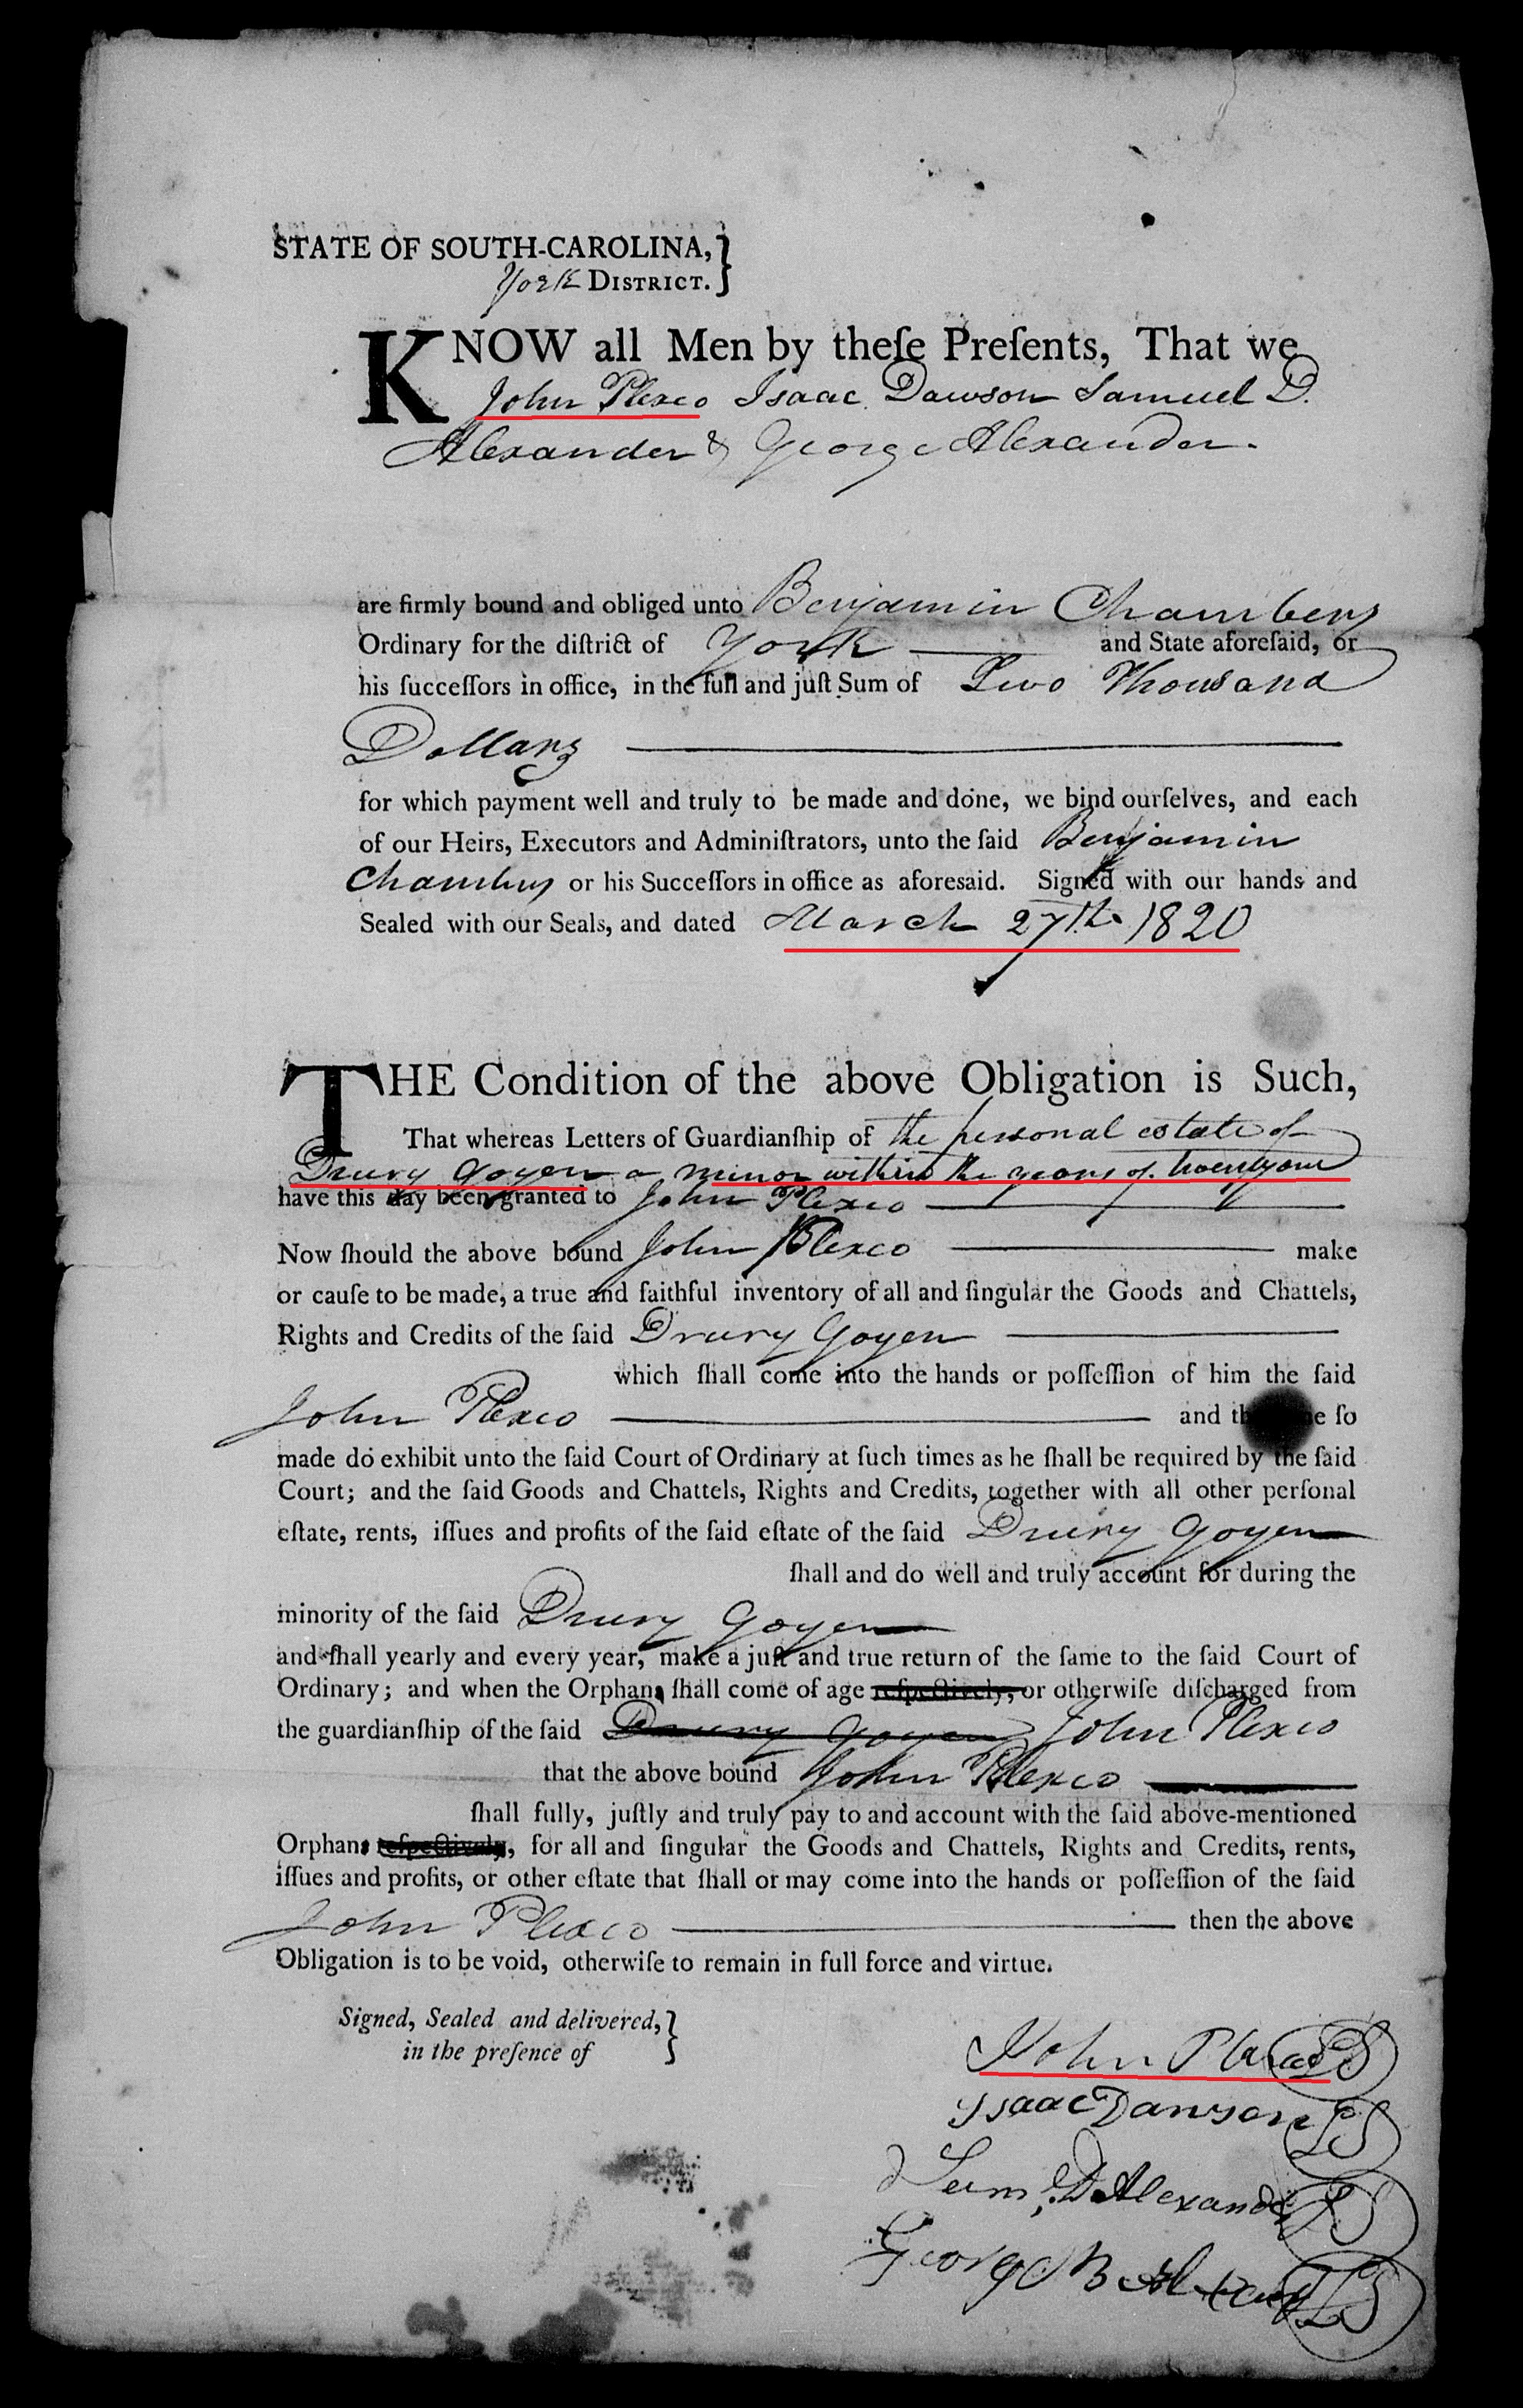 STATE OF SOUTH-CAROLINA, }
York DISTRICT. }
KNOW all Men by theſe Preſents, That we
John Plexco Isaac Dawson Samuel D.
Alexander & George Alexander.
are firmly bound and obliged unto Benjamin Chambers
Ordinary for the diſtrict of York and State aforeſaid, or
his ſucceſſors in office, in the full and juſt Sum of Two Thousand
Dollars
for which payment well and truly to be made and done, we bind ourſelves, and each
of our Heirs, Executors and Adminiſtrators, unto the ſaid Benjamin
Chambers or his Succeſſors in office as aforeſaid. Signed with our hands and
Sealed with our Seals, and dated March 27th 1820
THE Condition of the above Obligation is Such,
That whereas Letters of Guardianſhip of the personal estate of
Drury Goyen a minor within the years of twentyone
have this day been granted to John Plexco
Now ſhould the above bound John Plexco make
or cauſe to be made, a true and faithful inventory of all and ſingular the Goods and Chattels,
Rights and Credits of the ſaid Drury Goyen
which ſhall come into the hands or poſſeſſion of him the ſaid
John Plexco and the ſo
made do exhibit unto the ſaid Court of Ordinary at ſuch times as he ſhall be required by the ſaid
Court; and the ſaid Goods and Chattels, Rights and Credits, together with all other perſonal
eſtate, rents, iſſues and profits of the ſaid eſtate of the ſaid Drury Goyen
ſhall and do well and truly account for during the
minority of the ſaid Drury Goyen
and ſhall yearly and every year, make a juſt and true return of the ſame to the ſaid Court of
Ordinary; and when the Orphan, ſhall come of age reſpectively, or otherwiſe diſcharged from
the guardianſhip of the ſaid Drury Goyen John Plexco
that the above bound John Plexco
ſhall fully, juſtly and truly pay to and account with the ſaid above-mentioned
Orphans reſpectively, for all and ſingular the Goods and Chattels, Rights and Credits, rents,
iſſues and profits, or other eſtate that ſhall or may come into the hands or poſſeſſion of the ſaid
John Plexco then the above
Obligation is to be void, otherwiſe to remain in full force and virtue.
Signed, Sealed and delivered, }
in the preſence of }
John Plexco LS
Isaac Dawson LS
Saml. D Alexander LS
George B Alexander LS